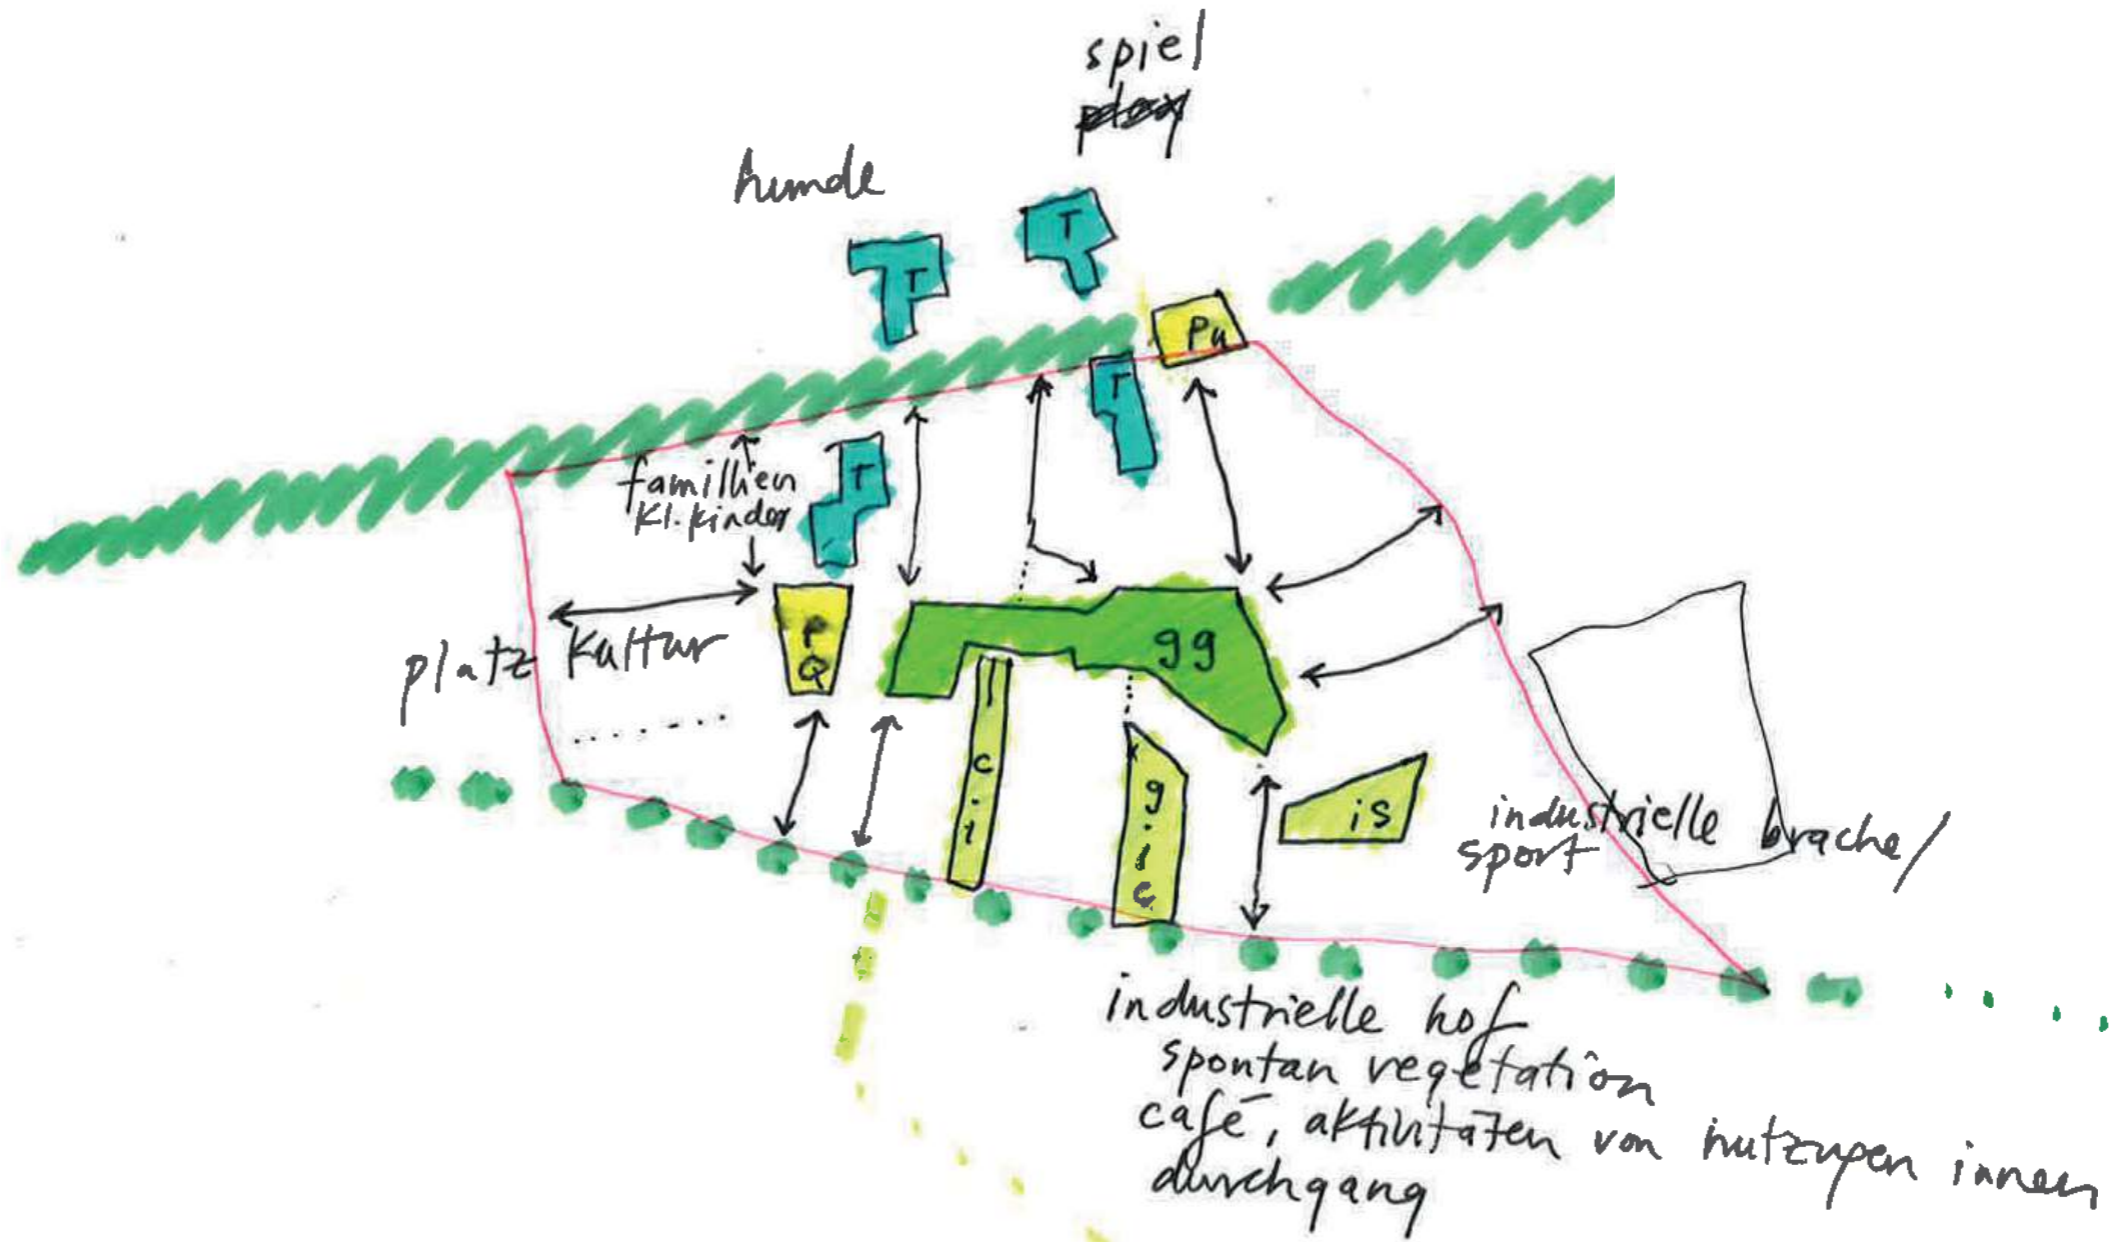 spiel
hunde
T
T
Pu
T
T
familien
kl. kinder
platz kultur
P
Q
gg
c.i
g.ic
is
industrielle brache/
sport
industrielle hof
spontan vegetation
café, aktivitäten von nutzungen innen
durchgang